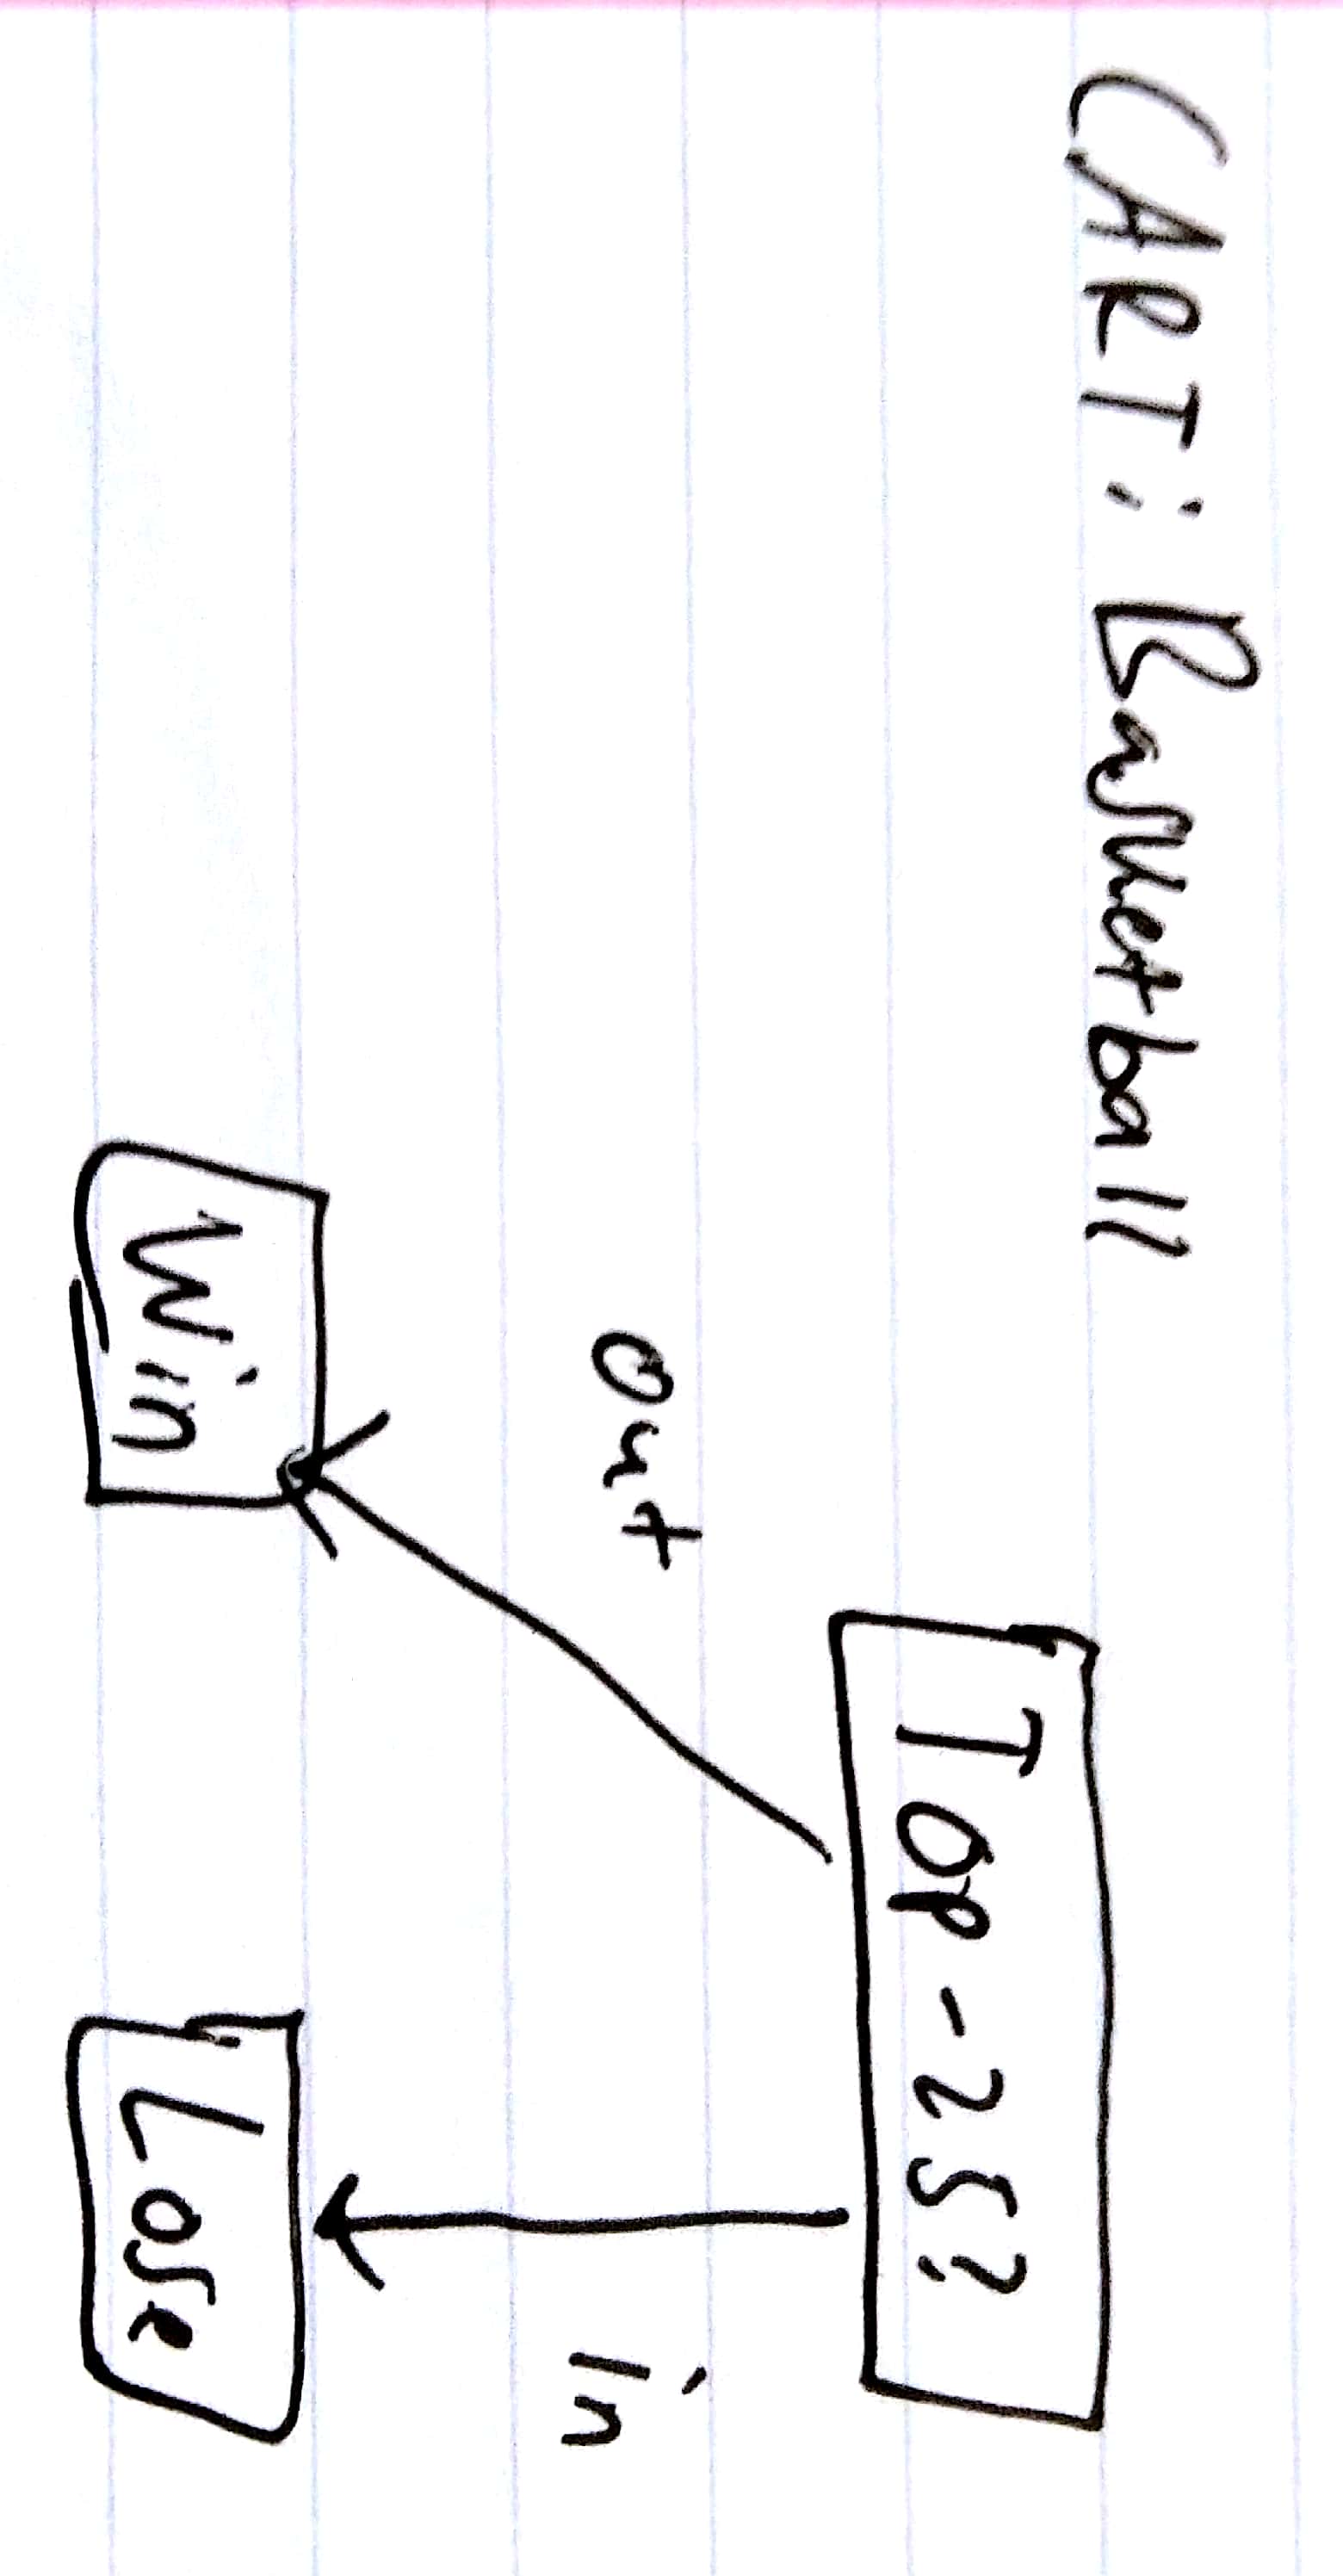 CART: Basketball
Top-25?
Out
in
Win
Lose